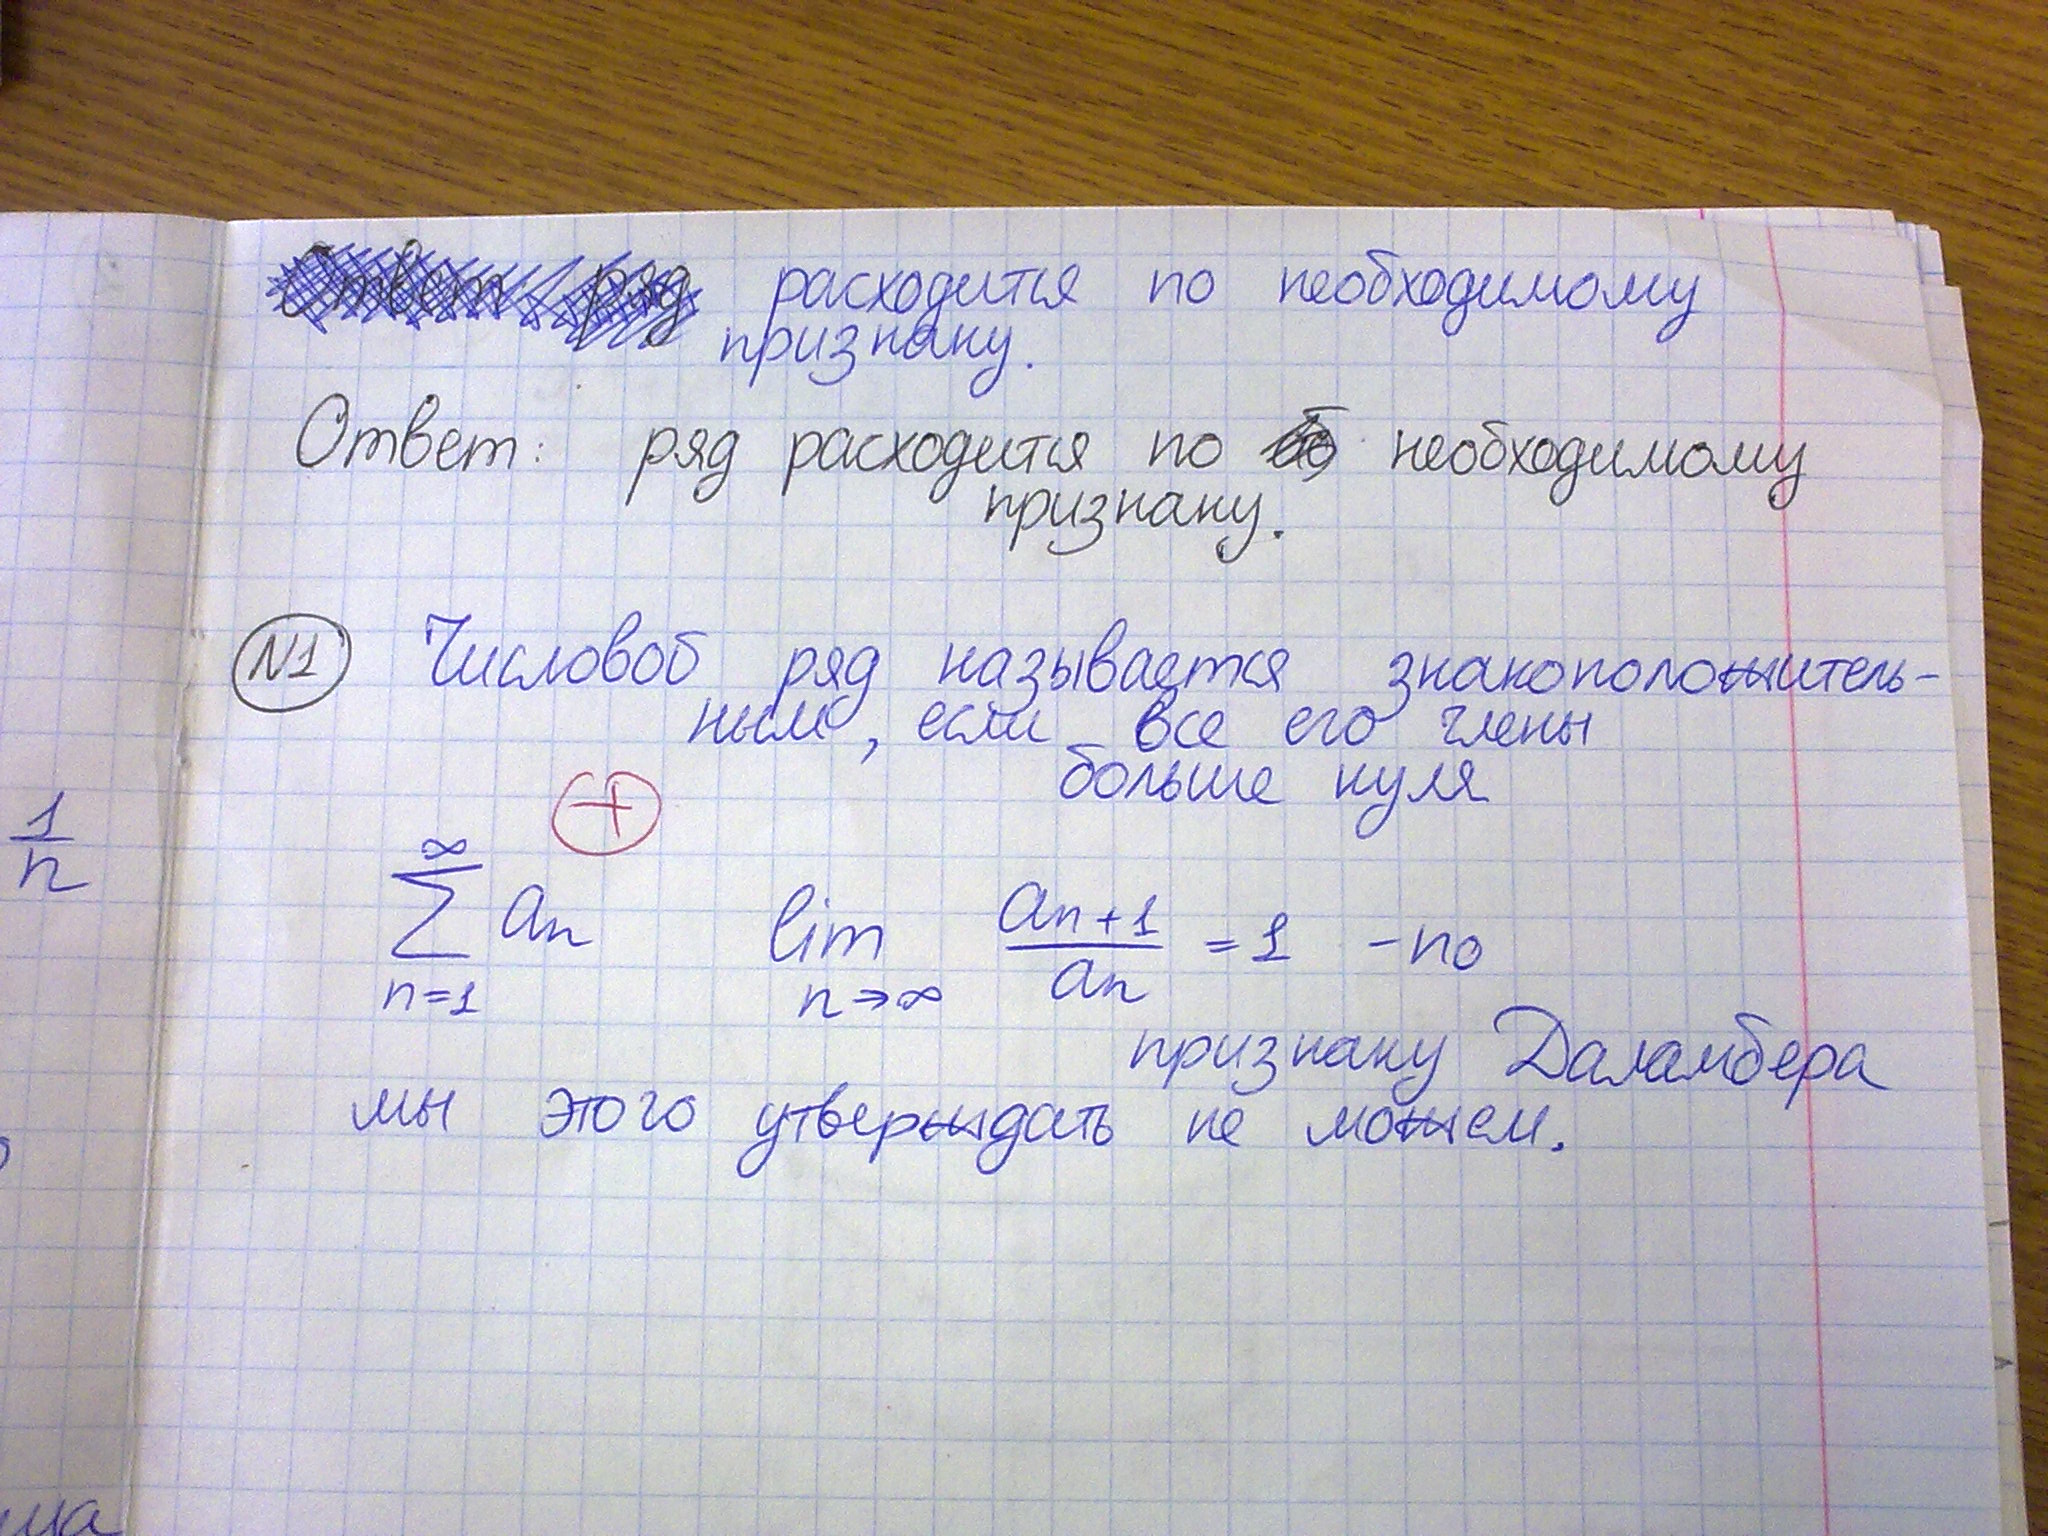 Ответ: ряд расходится по необходимому
признаку.
Ответ: ряд расходится по необходимому
признаку.
N1 Числовой ряд называется знакоположитель-
ным, если все его члены
больше нуля
+
1/n
∑_{n=1}^{∞} an lim_{n→∞} an+1/an = 1 - по
признаку Даламбера
мы этого утверждать не можем.